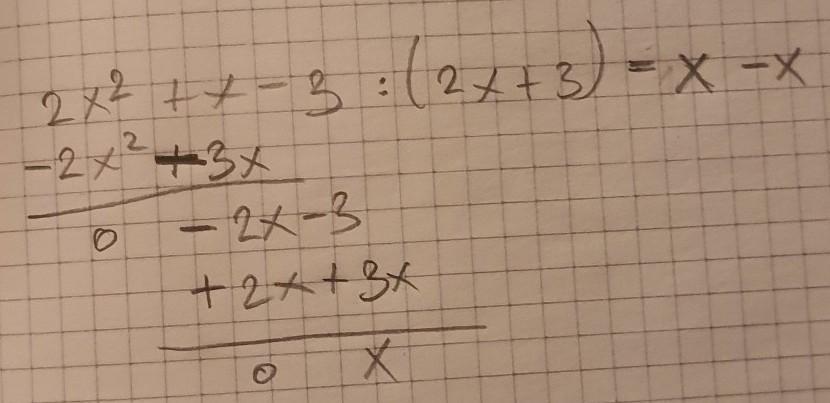 2x² + x - 3 : (2x + 3) = x - x
-2x² - 3x
0 - 2x - 3
+ 2x + 3x
0 x